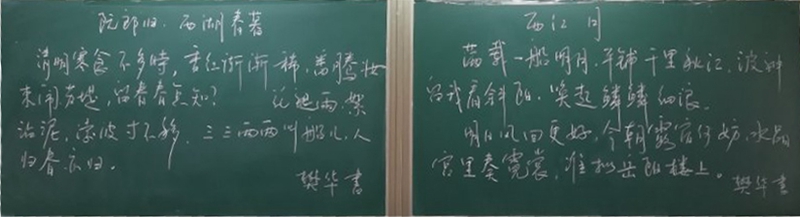 阮郎归·西湖春暮
清明寒食不多時，香红渐渐稀，番腾妆
束闹苏堤，留春春怎知？ 花褪雨，絮
沾泥，凌波寸不移。三三两两叫船儿，人
归春亦归。
樊华书
西江月
满载一船明月，平铺千里秋江，波神
留我看斜阳，唤起鳞鳞细浪。
明日风回更好，今朝露宿何妨，水晶
宫里奏霓裳，准拟岳阳楼上。
樊华书